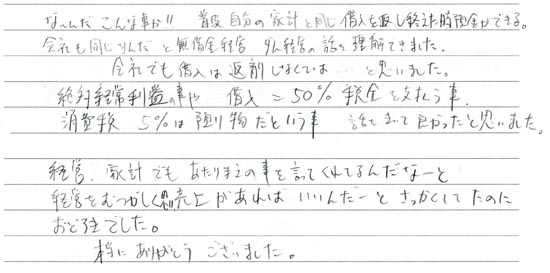 なーんだ こんな事か!! 普段 自分の家計と同じ 借入を返し終えた時預金ができる。
会社も同じなんだ と無借金経営 ダム経営の話を理解できました。
会社でも借入は返済しなくては…と思いました。
絶対経常利益の事や 借入=50% 税金を支払う事、
消費税 5%は預り物だという事 話をきいて良かったと思いました。
経営、家計でも あたりまえの事を言ってくれてるんだなーと
経営をむつかしく思い売上があれば いいんだーと さっかくしてたのに
おどろきでした。
本当に ありがとう ございました。